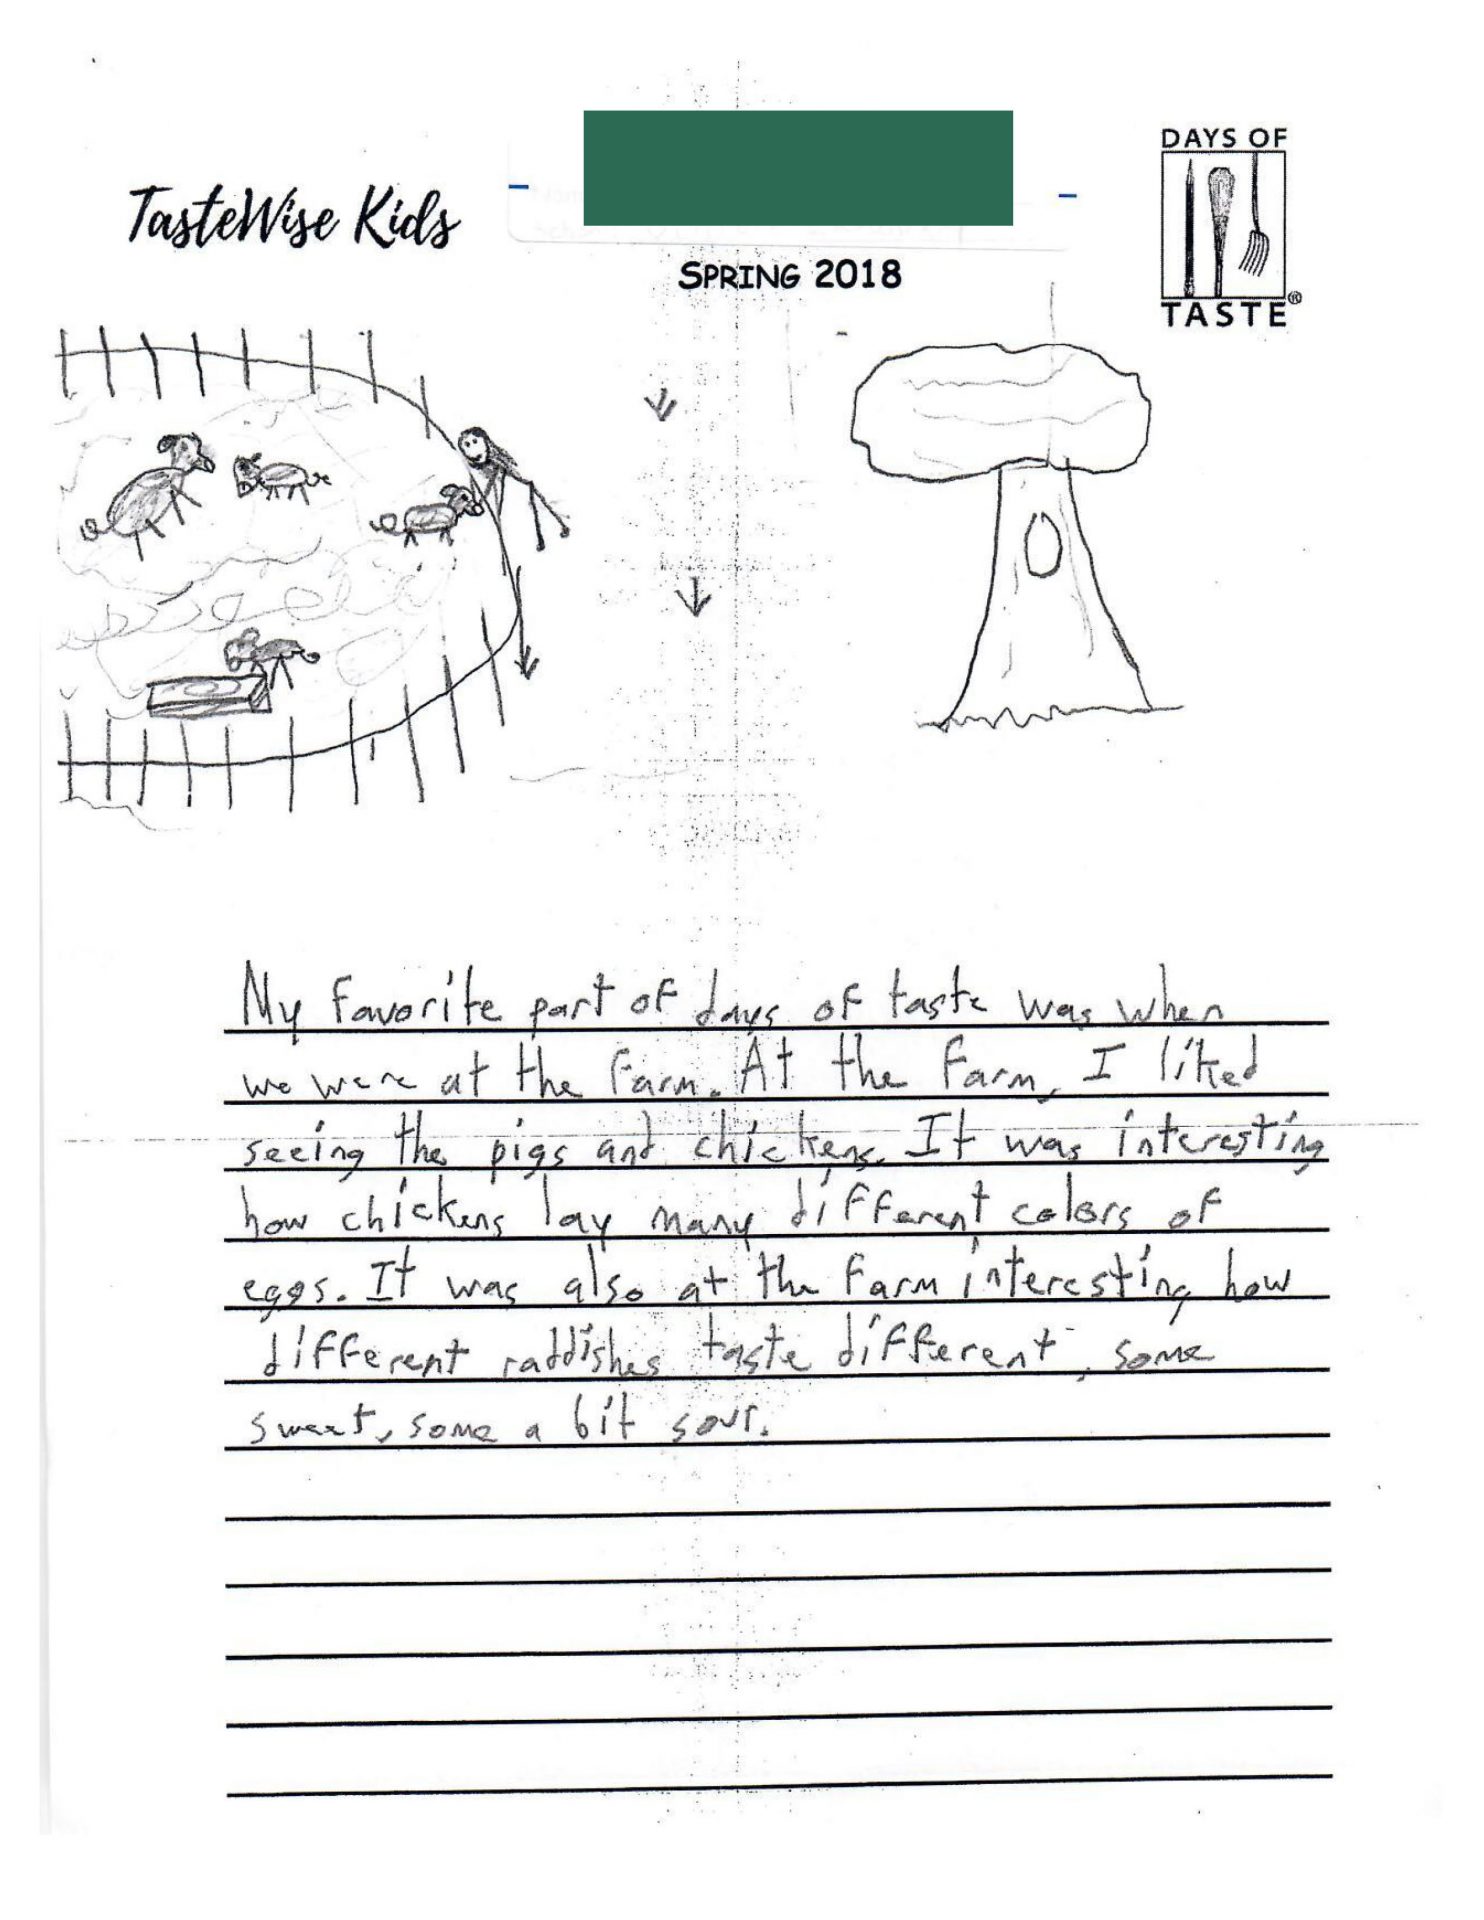 DAYS OF
TASTE®
TasteWise Kids
SPRING 2018
My favorite part of days of taste was when
we were at the farm. At the farm, I liked
seeing the pigs and chickens. It was interesting
how chickens lay many different colors of
eggs. It was also at the farm interesting how
different raddishes taste different, some
sweet, some a bit sour.